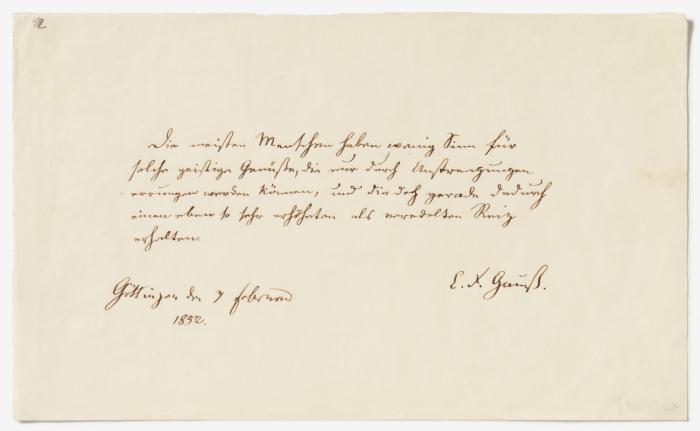 12
Die meisten Menschen haben wenig Sinn für
solche geistige Genüsse, die nur durch Anstrengungen
errungen werden können, und die doch gerade dadurch
einen eben so sehr erhöheten als veredelten Reiz
erhalten.
Göttingen den 7 Februar
C. F. Gauß.
1852.